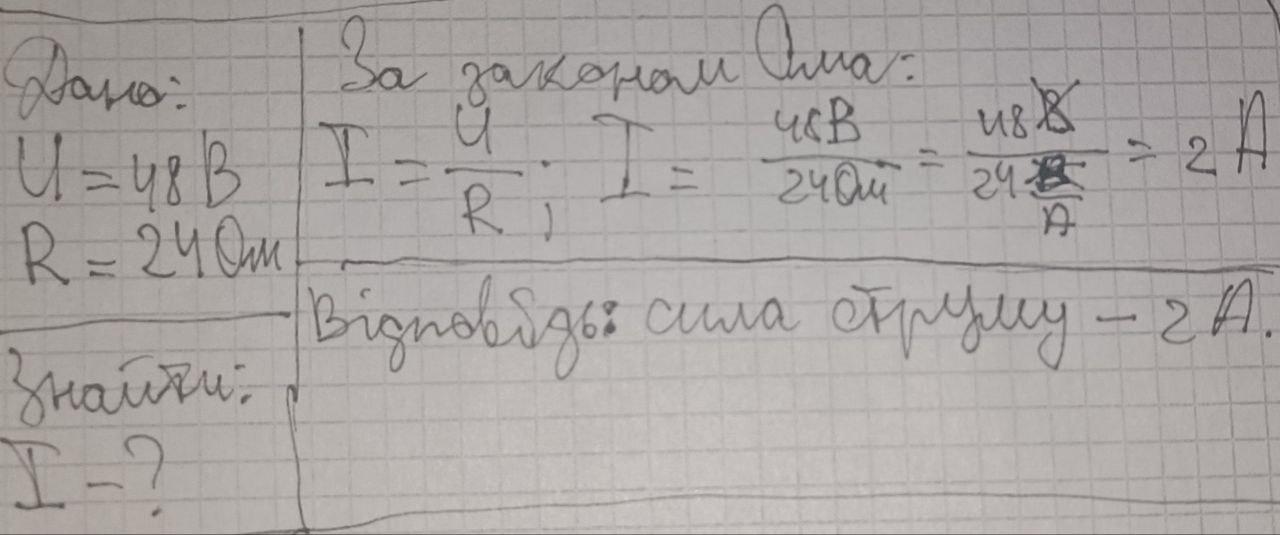 Дано:
U = 48 В
R = 24 Ом
Знайти:
I - ?
За законом Ома:
I = U/R ; I = 48В/24Ом = 48В/24 В/А = 2 А
Відповідь: сила струму - 2 А.